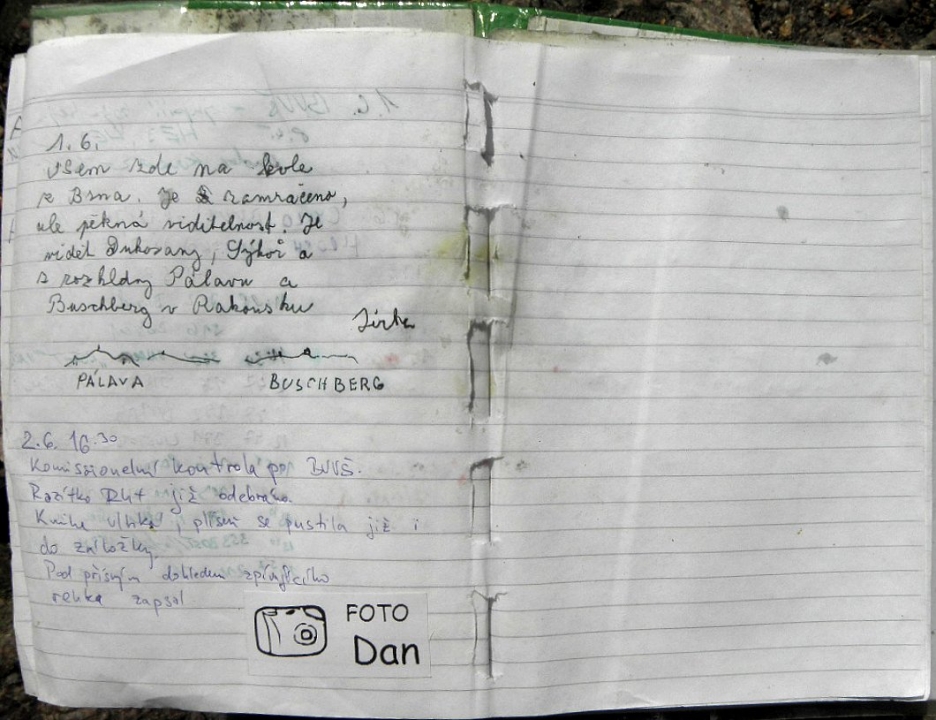 1.6.
Jsem zde na kole
z Brna. Je zamračeno,
ale pěkná viditelnost. Je
vidět Dukovany, Sýkoř a
z rozhledny Pálavu a
Buschberg v Rakousku
Jirka
PÁLAVA BUSCHBERG
2.6. 16.30
Komisionelní kontrola po BUVŠ.
Razítko již odebráno.
Kniha vlhká, plíseň se pustila již i
do záložky.
Pod přísným dohledem zpívajícího
rehka zapsal
FOTO
Dan